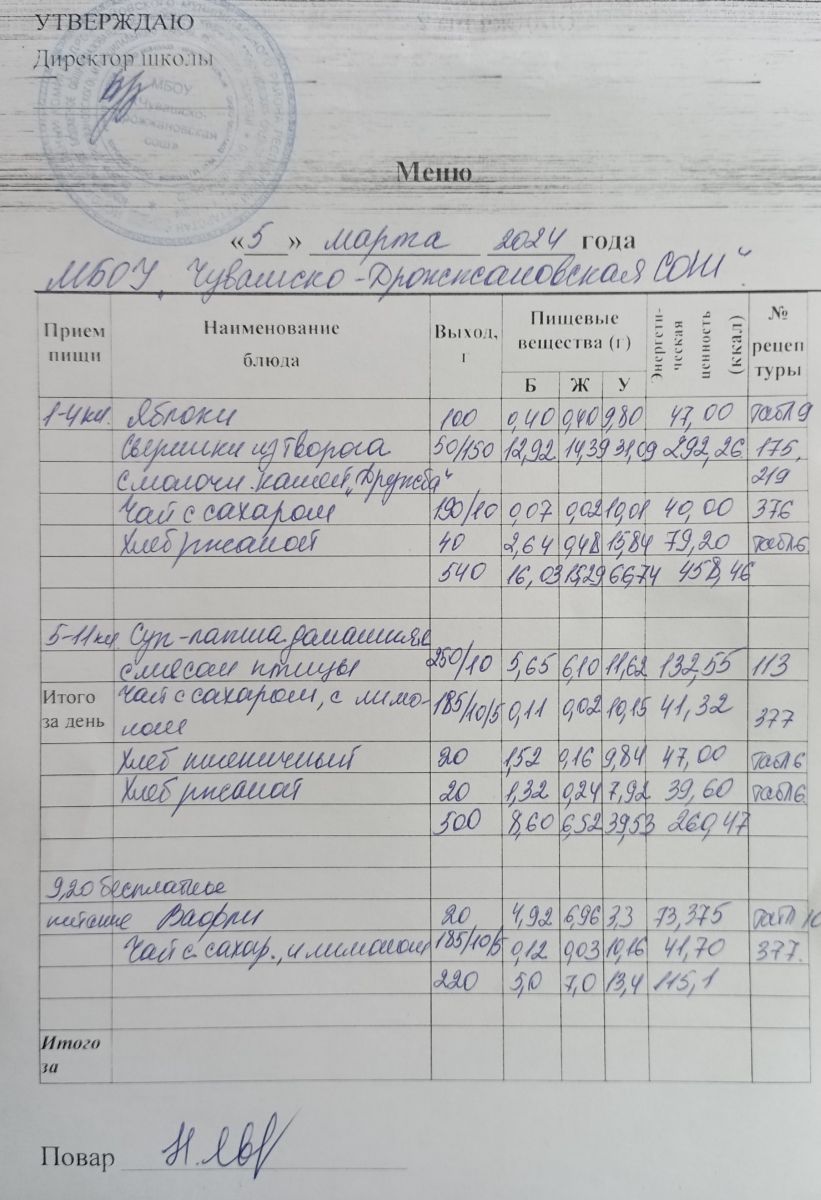 УТВЕРЖДАЮ
Директор школы
МБОУ
«Чувашско-
Дрожжановская
сош»
Меню
«5» марта 2024 года
МБОУ „Чувашско-Дрожжановская СОШ".
Прием пищи Наименование блюда Выход, г Пищевые вещества (г) Б Ж У Энергети-ческая ценность (ккал) № рецептуры
1-4 кл. Яблоки 100 0,40 0,40 9,80 47,00 табл 9
Сырники из творога 50/150 12,92 14,39 31,09 292,26 175,
с молочн. кашей „Дружба" 219
Чай с сахаром 190/10 0,07 0,02 10,01 40,00 376
Хлеб ржаной 40 2,64 0,48 15,84 79,20 табл 6
540 16,03 15,29 66,74 458,46
5-11 кл. Суп-лапша домашняя
с мясом птицы 250/10 5,65 6,10 11,62 132,55 113
Итого за день Чай с сахаром, с лимо-
ном 185/10/5 0,11 0,02 10,15 41,32 377
Хлеб пшеничный 20 1,52 0,16 9,84 47,00 табл 6
Хлеб ржаной 20 1,32 0,24 7,92 39,60 табл 6
500 8,60 6,52 39,53 260,47
9,20 бесплатное
питание Вафли 20 4,92 6,96 3,3 73,375 табл 10
Чай с сахар., и лимоном 185/10/5 0,12 0,03 10,16 41,70 377.
220 5,0 7,0 13,4 115,1
Итого
за
Повар